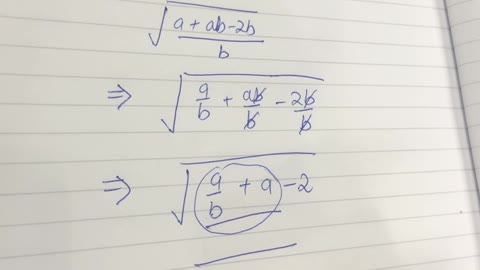 √((a + ab - 2b)/b)
⇒ √(a/b + ab/b - 2b/b)
⇒ √(a/b + a - 2)